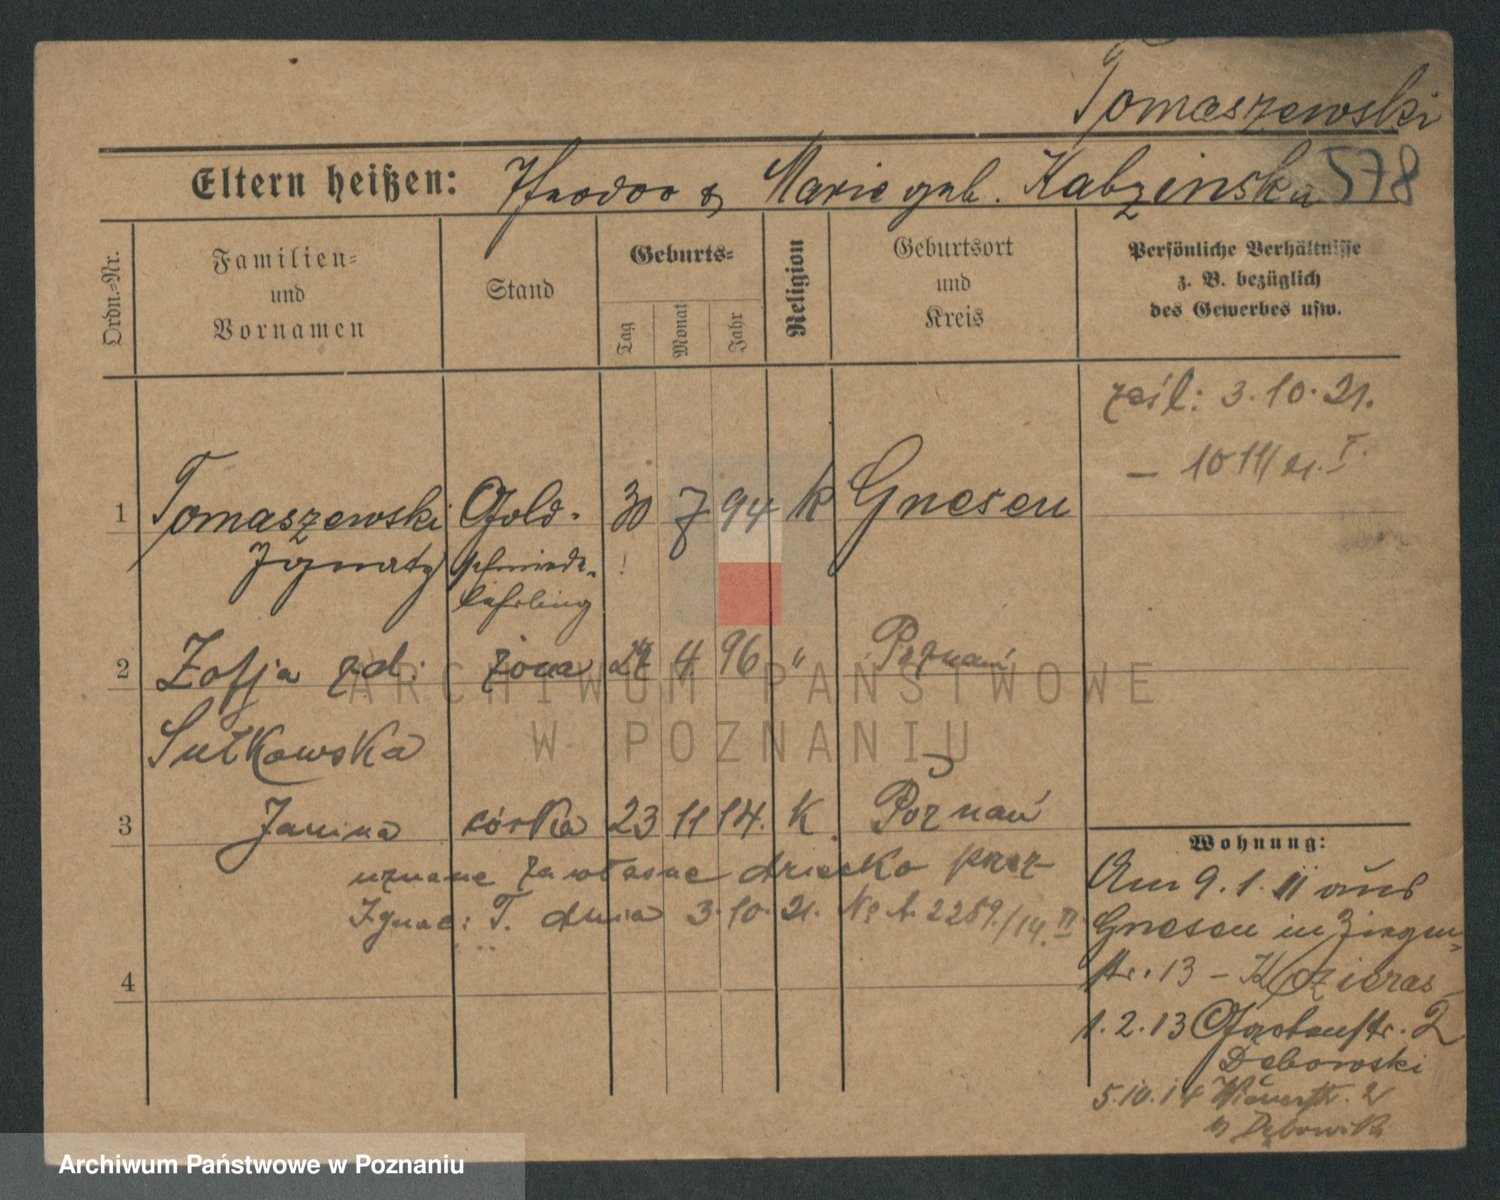 Tomaszewski
Eltern heißen: Theodor & Marie geb. Kabzinska 578
Ordn.-Nr.
Familien-
und
Vornamen
Stand
Geburts-
Tag
Monat
Jahr
Religion
Geburtsort
und
Kreis
Persönliche Verhältnisse
z. B. bezüglich
des Gewerbes usw.
3.10.21.
1 Tomaszewski Gold- 30 7 94 k Gnesen
Ignatz schmiede-
lehrling
2 Zofja zd: żona 27 4 96 " Poznań
Sułkowska
3 Janina córka 23 11 14. K. Poznań
uznane za własne dziecko przez
Ignac: T. dnia 3.10.21. No A. 2259./14. II
4
Wohnung:
Am 9.1.11 aus
Gnesen in Ziegen-
str. 13 – Kozieras
1.2.13 Gartenstr. 2
Debowski
5.10.14 Wienerstr. 2
b Dębowski
ARCHIWUM PAŃSTWOWE
W POZNANIU
Archiwum Państwowe w Poznaniu